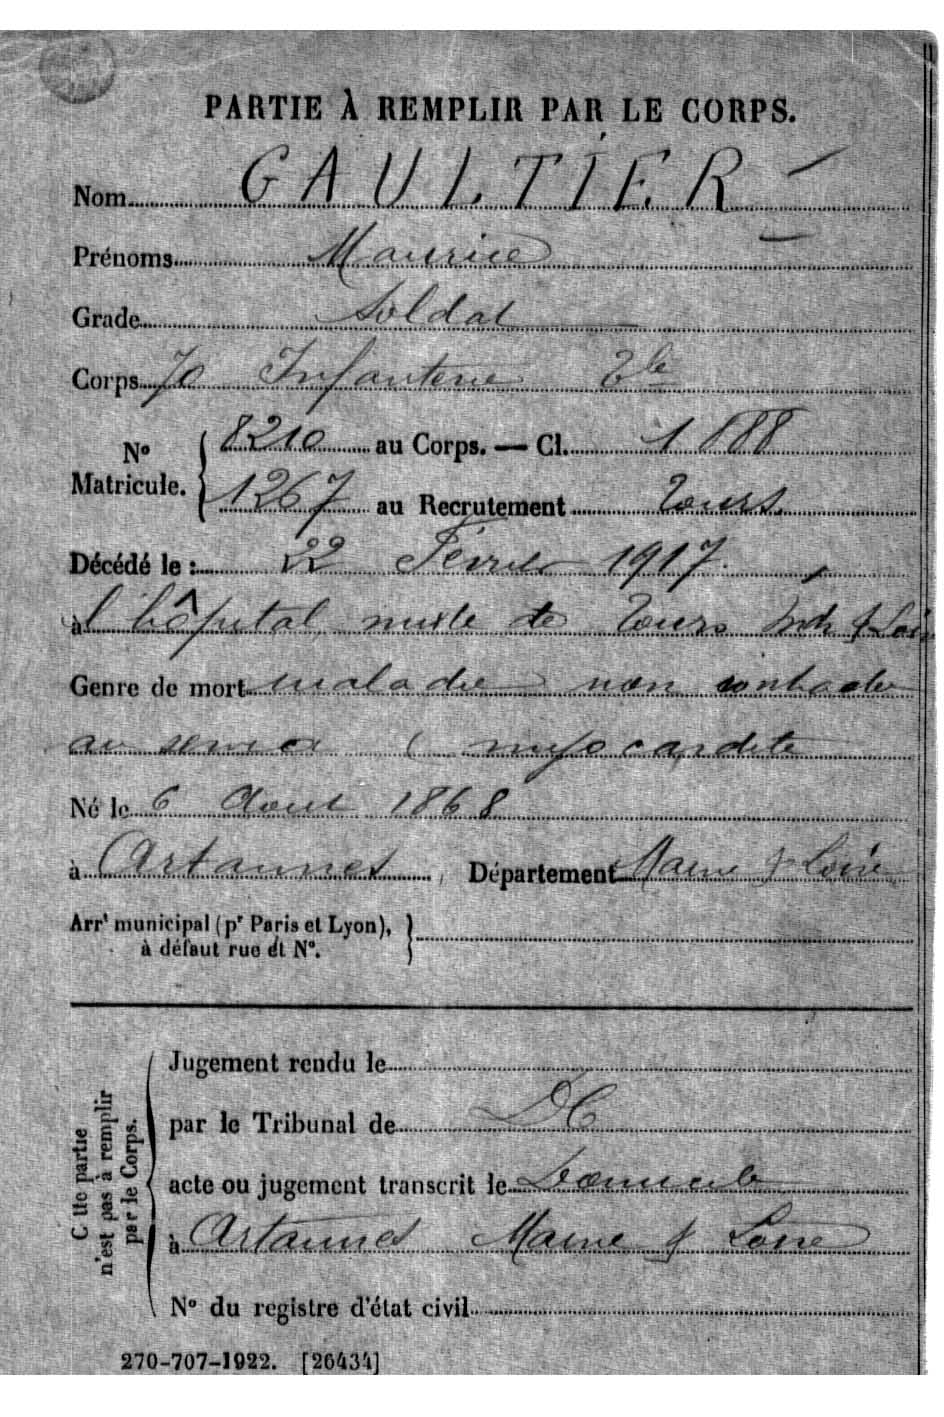 PARTIE À REMPLIR PAR LE CORPS.
Nom GAULTIER
Prénoms Maurice
Grade Soldat
Corps 70 Infanterie Tle
No Matricule. 8210 au Corps. — Cl. 1888
1267 au Recrutement Tours
Décédé le : 22 Février 1917
à l'hôpital mixte de Tours Ind & Loire
Genre de mort maladie non contractée
au service ( myocardite
Né le 6 Aout 1868
à Artannes, Département Maine & Loire
Arrt municipal (pr Paris et Lyon),
à défaut rue et No.
Cette partie n'est pas à remplir par le Corps.
Jugement rendu le
par le Tribunal de DC
acte ou jugement transcrit le Domicile
à Artannes Maine & Loire
No du registre d'état civil
270-707-1922. [26434]